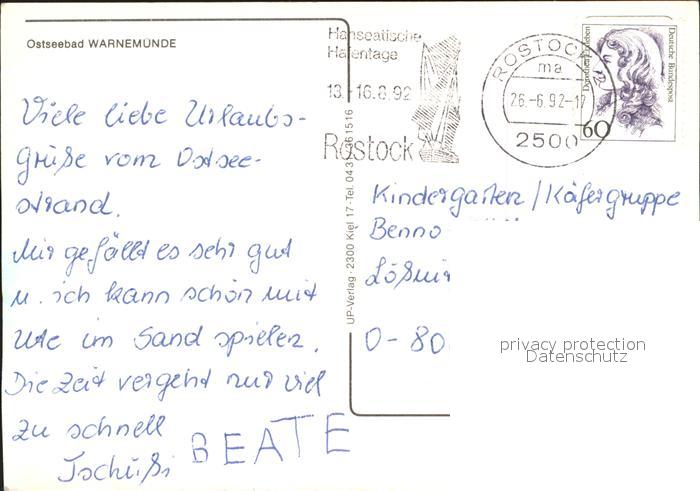 Ostseebad WARNEMÜNDE
Viele liebe Urlaubs-
grüße vom Ostsee-
strand.
Mir gefällt es sehr gut
u. ich kann schön mit
Ute im Sand spielen.
Die Zeit vergeht nur viel
zu schnell
Tschüßi
BEATE
UP-Verlag · 2300 Kiel 17-Tel.
Hanseatische
Hafentage
13.-16.8.92
Rostock
ROSTOCK
ma
26.-6.92-17
2500
60
Deutsche Bundespost
Kindergarten/Käfergruppe
Benno
0-80
privacy protection
Datenschutz